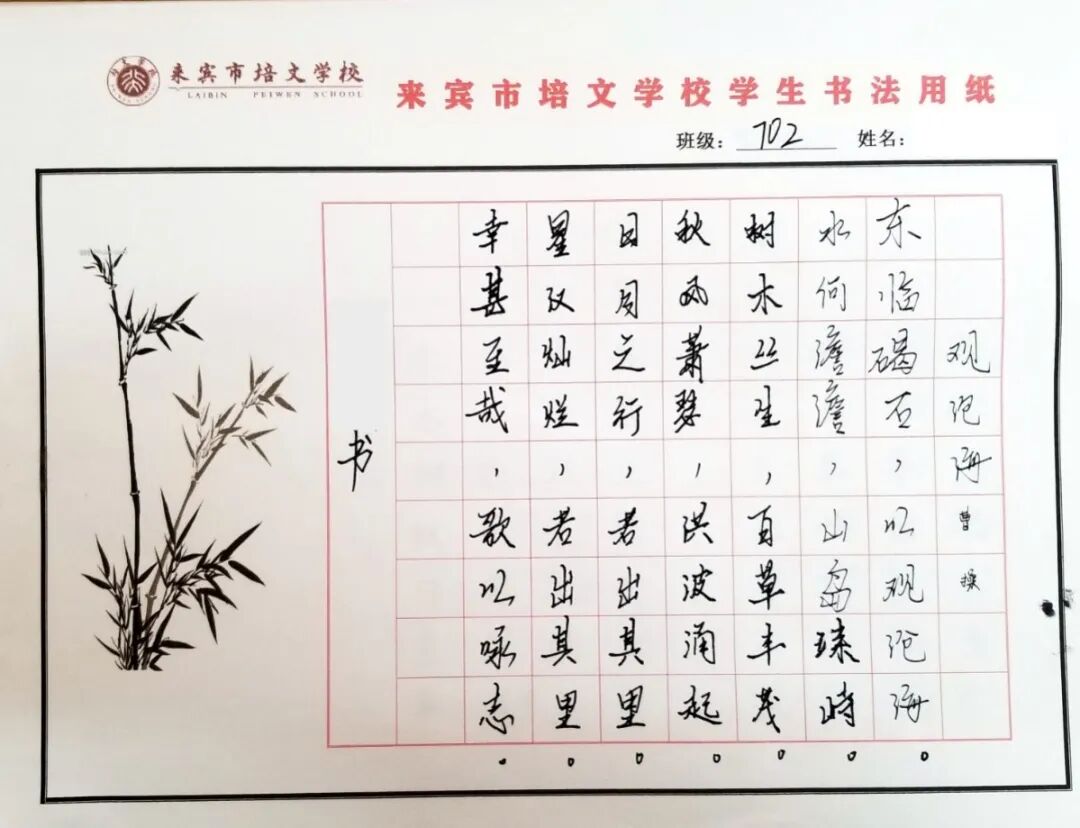 来宾市培文学校
LAIBIN PEIWEN SCHOOL
来宾市培文学校学生书法用纸
班级：702 姓名：
观沧海 曹操
东临碣石，以观沧海。
水何澹澹，山岛竦峙。
树木丛生，百草丰茂。
秋风萧瑟，洪波涌起。
日月之行，若出其里。
星汉灿烂，若出其里。
幸甚至哉，歌以咏志。
书